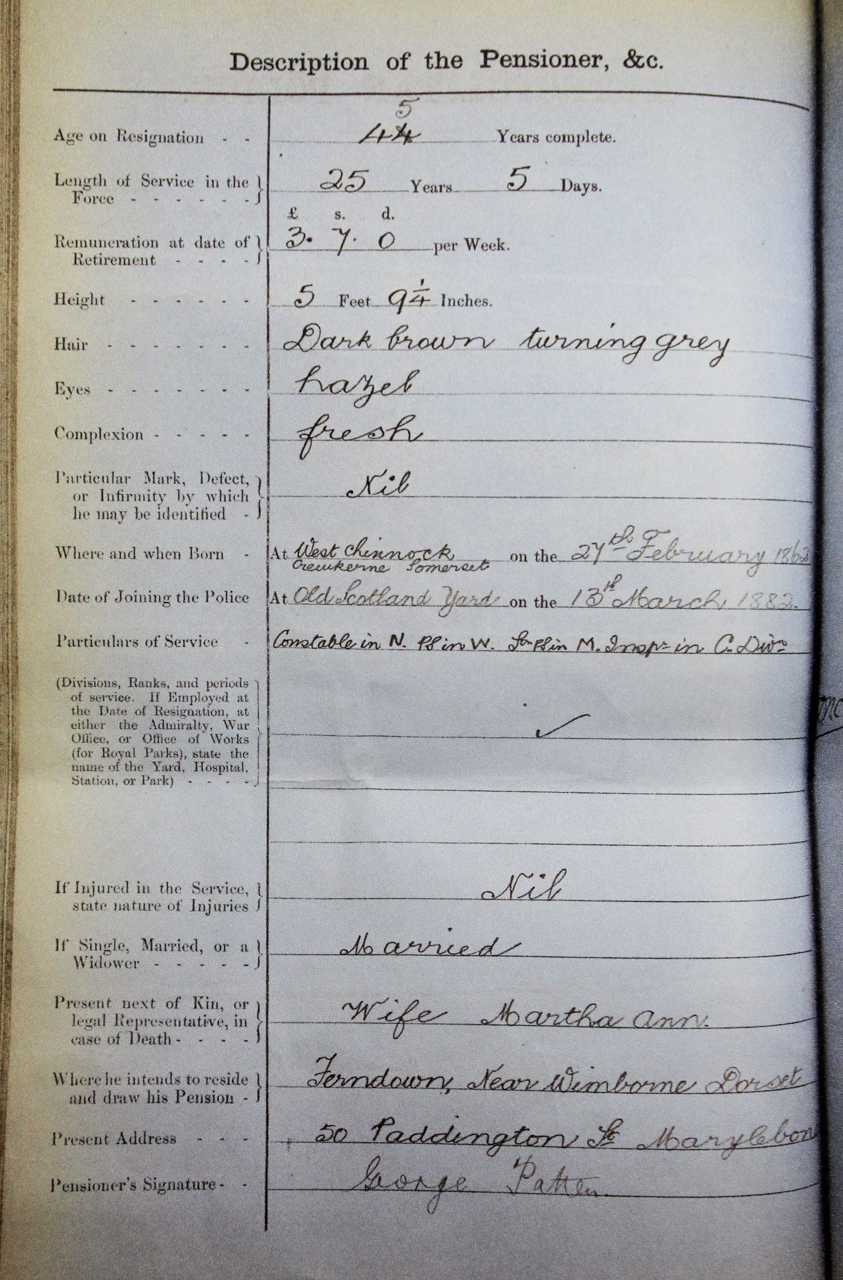 Description of the Pensioner, &c.
5
Age on Resignation - - 44 Years complete.
Length of Service in the
Force - - - - - - 25 Years 5 Days.
£ s. d.
Remuneration at date of
Retirement - - - - 3. 7. 0 per Week.
Height - - - - - - 5 Feet 9¼ Inches.
Hair - - - - - - - Dark brown turning grey
Eyes - - - - - - - hazel
Complexion - - - - - fresh
Particular Mark, Defect,
or Infirmity by which
he may be identified - Nil
Where and when Born - At West Chinnock on the 27th February 1862
Crewkerne Somerset
Date of Joining the Police At Old Scotland Yard on the 13th March 1882.
Particulars of Service - Constable in N. PS in W. Stn PS in M. Inspr in C. Divn
(Divisions, Ranks, and periods
of service. If Employed at
the Date of Resignation, at
either the Admiralty, War
Office, or Office of Works
(for Royal Parks), state the
name of the Yard, Hospital,
Station, or Park) - - - -
If Injured in the Service,
state nature of Injuries Nil
If Single, Married, or a
Widower - - - - - Married
Present next of Kin, or
legal Representative, in
case of Death - - - - Wife Martha Ann.
Where he intends to reside
and draw his Pension - Ferndown, Near Wimborne Dorset
Present Address - - - 50 Paddington St Marylebon
Pensioner's Signature - - George Patten